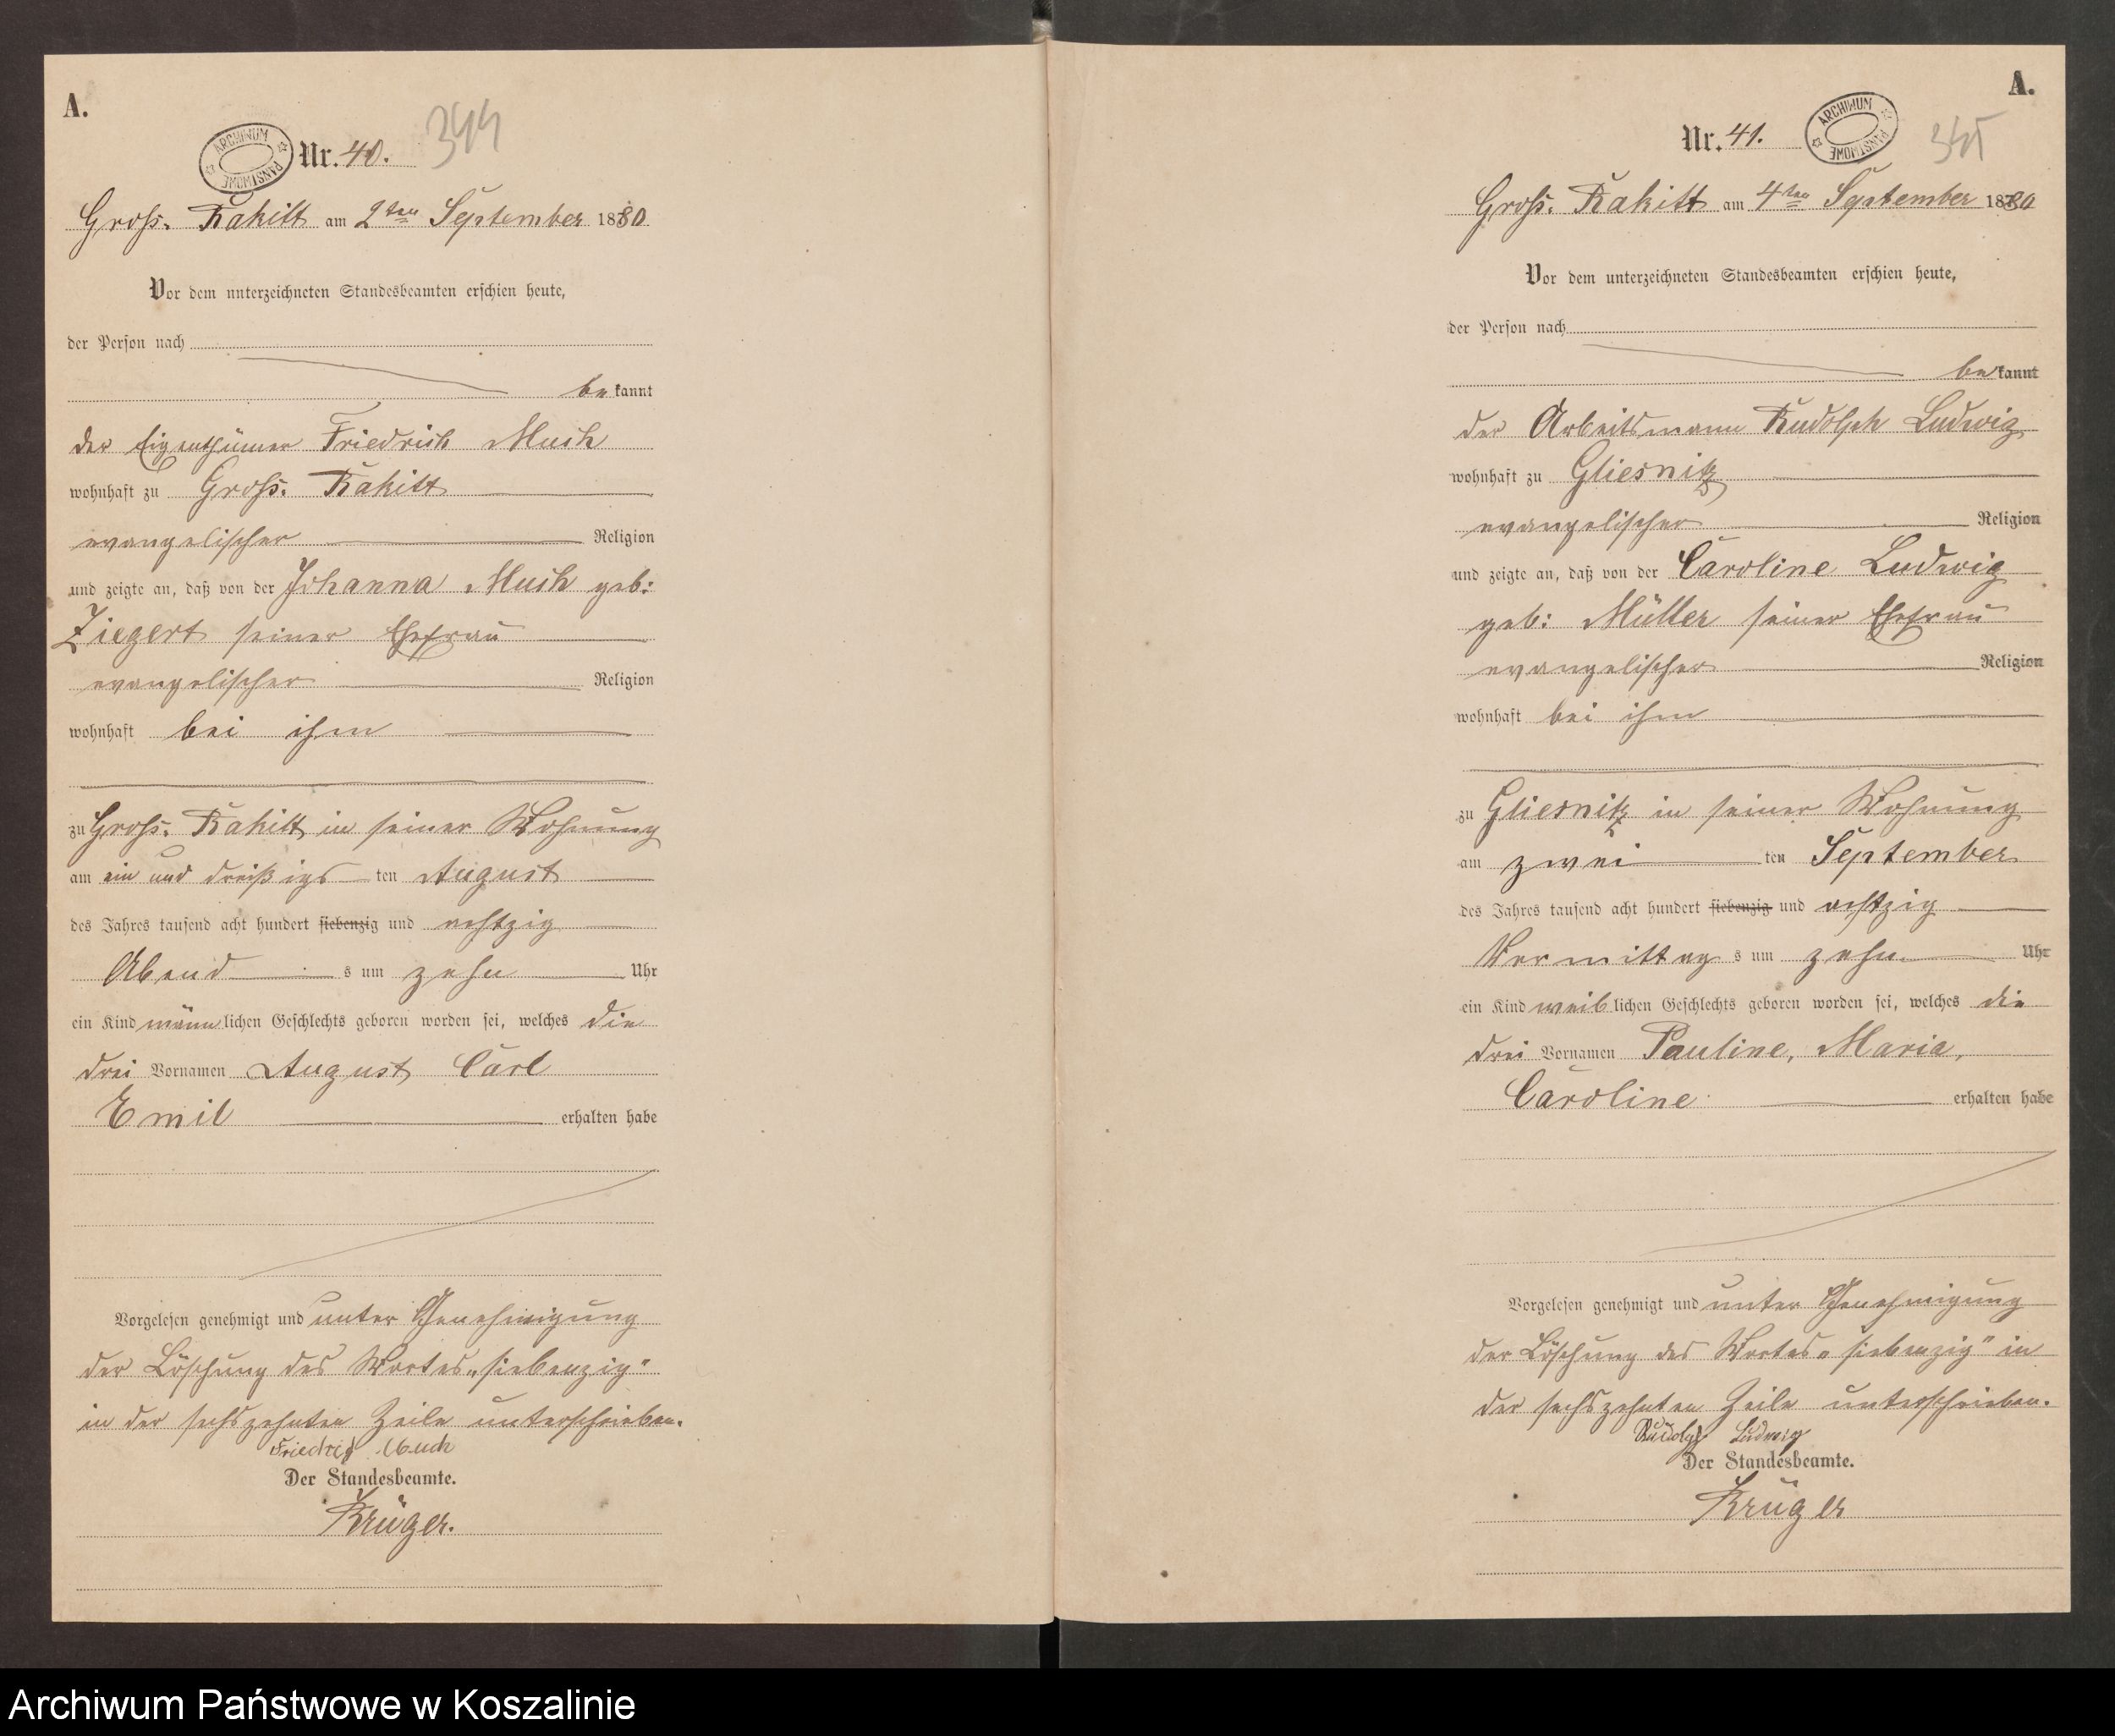 A.
ARCHIWUM PAŃSTWOWE
Nr. 40.
344
Groß. Rakitt am 2ten September 1880
Vor dem unterzeichneten Standesbeamten erschien heute,
der Person nach
bekannt
der Eigenthümer Friedrich Much
wohnhaft zu Groß. Rakitt
evangelischer Religion
und zeigte an, daß von der Johanna Much geb:
Ziegert seiner Ehefrau
evangelischer Religion
wohnhaft bei ihm
zu Groß. Rakitt in seiner Wohnung
am ein und dreißigs ten August
des Jahres tausend acht hundert siebenzig und achtzig
Abend s um zehn Uhr
ein Kind männlichen Geschlechts geboren worden sei, welches die
drei Vornamen August Carl
Emil erhalten habe
Vorgelesen genehmigt und unter Genehmigung
der Löschung des Wortes „siebenzig"
in der sechszehnten Zeile unterschrieben.
Friedrich Much
Der Standesbeamte.
Krüger.
A.
ARCHIWUM PAŃSTWOWE
Nr. 41.
345
Groß. Rakitt am 4ten September 1880
Vor dem unterzeichneten Standesbeamten erschien heute,
der Person nach
bekannt
der Arbeitsmann Rudolph Ludwig
wohnhaft zu Gliesnitz
evangelischer Religion
und zeigte an, daß von der Caroline Ludwig
geb: Müller seiner Ehefrau
evangelischer Religion
wohnhaft bei ihm
zu Gliesnitz in seiner Wohnung
am zwei ten September
des Jahres tausend acht hundert siebenzig und achtzig
Vormittag s um zehn Uhr
ein Kind weiblichen Geschlechts geboren worden sei, welches die
drei Vornamen Pauline, Maria,
Caroline erhalten habe
Vorgelesen genehmigt und unter Genehmigung
der Löschung des Wortes „siebenzig" in
der sechszehnten Zeile unterschrieben.
Rudolph Ludwig
Der Standesbeamte.
Krüger
Archiwum Państwowe w Koszalinie